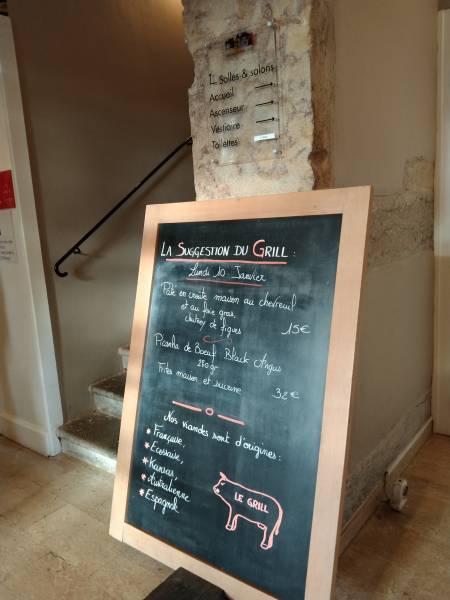 Salles & salons
Accueil
Ascenseur
Vestiaire
Toilettes
LA SUGGESTION DU GRILL :
Lundi 10 Janvier
Pâté en croûte maison au chevreuil
et au foie gras,
chutney de figues 15€
Picanha de Boeuf Black Angus
280gr
Frites maison et sucrine 32€
Nos viandes sont d'origines :
* Française,
* Ecossaise,
* Kansas
* Australienne
* Espagnole
LE GRILL